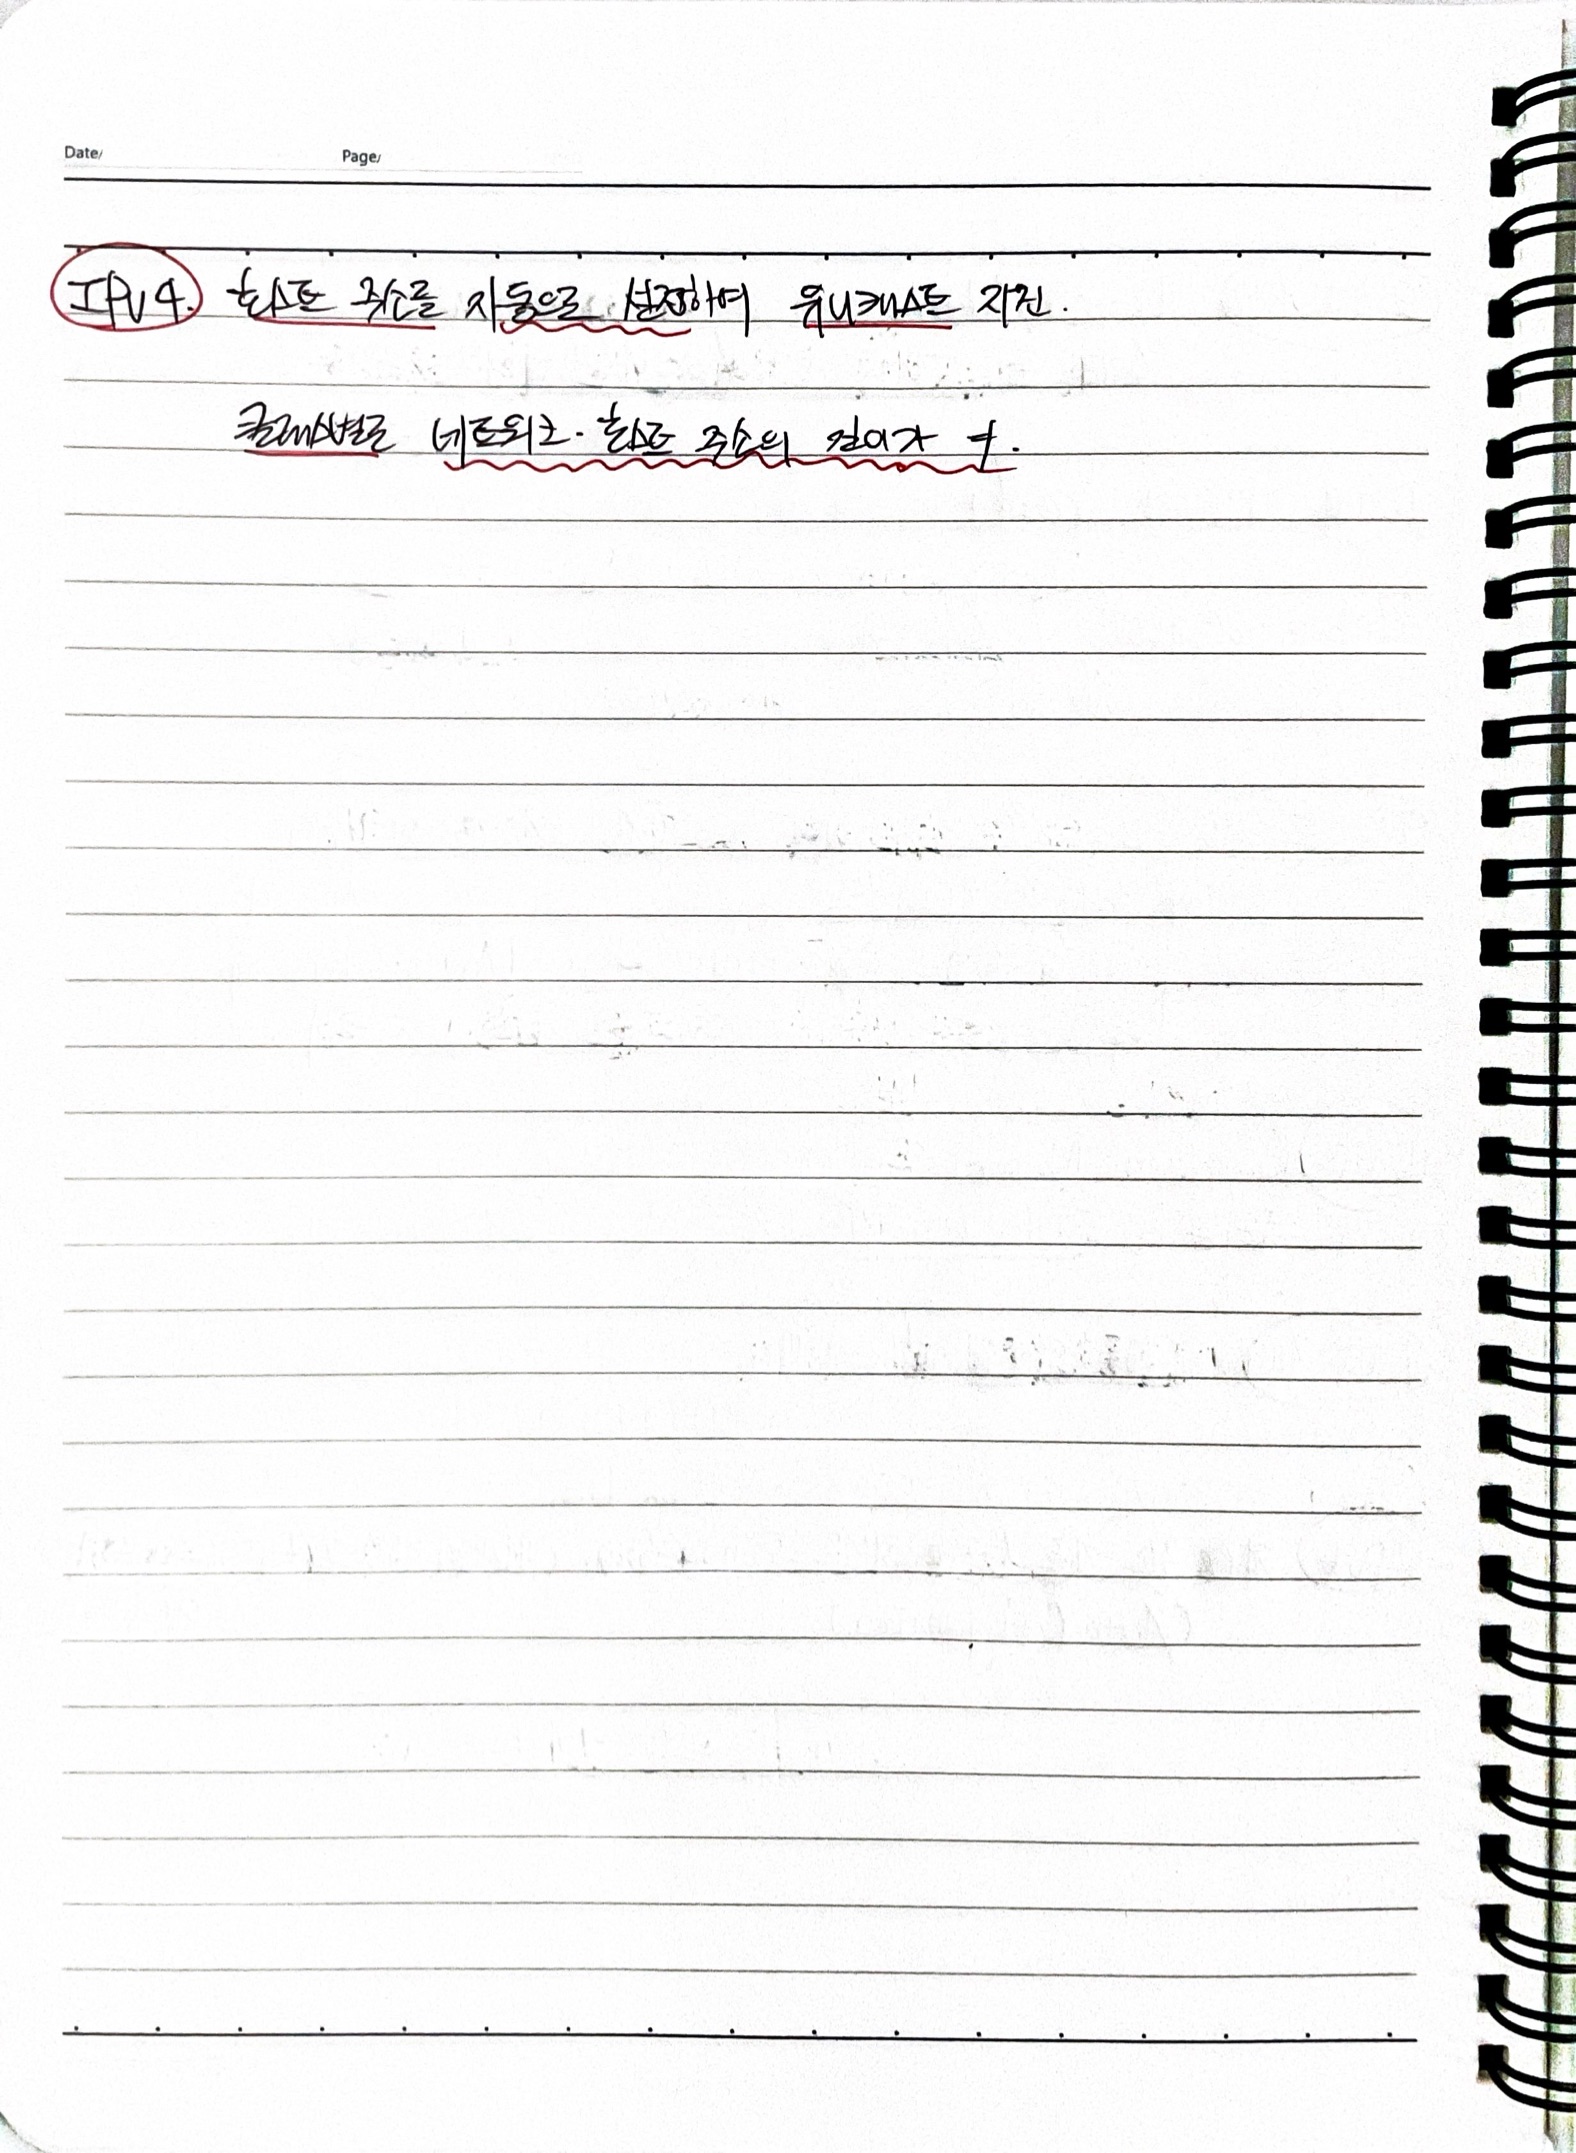 Date/ Page/
IPv4. 호스트 주소를 자동으로 설정하여 유니캐스트 지원.
클래스별로 네트워크·호스트 주소의 길이가 ≠.